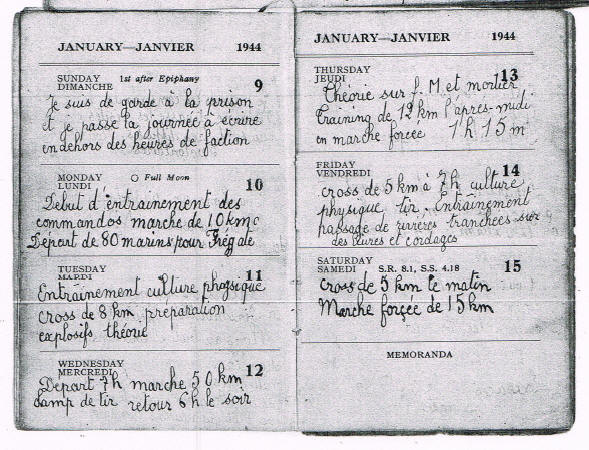 JANUARY—JANVIER 1944
SUNDAY 1st after Epiphany
DIMANCHE 9
Je suis de garde à la prison
et je passe la journée à écrire
en dehors des heures de faction
MONDAY O Full Moon
LUNDI 10
Debut d'entrainement des
commandos marche de 10 km
Départ de 80 marins pour Frégate
TUESDAY
MARDI 11
Entraînement culture physique
cross de 8 km preparation
explosifs théorie
WEDNESDAY
MERCREDI 12
Depart 7h marche 50 km
Camp de tir retour 6h le soir
JANUARY—JANVIER 1944
THURSDAY
JEUDI 13
Théorie sur f. M et mortier
Training de 12 km l'après-midi
en marche forcée 1h 15m
FRIDAY
VENDREDI 14
cross de 5 km à 7h culture
physique tir. Entraînement
passage de rivières tranchées sur
des et cordages
SATURDAY
SAMEDI S.R. 8.1, S.S. 4.18 15
cross de 5 km le matin
Marche forçée de 15 km
MEMORANDA